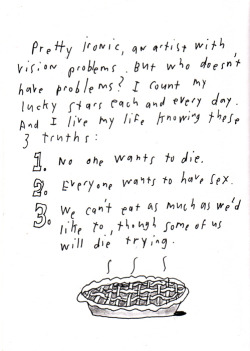 Pretty ironic, an artist with
vision problems. But who doesn't
have problems? I count my
lucky stars each and every day.
And I live my life knowing these
3 truths:
1. No one wants to die.
2. Everyone wants to have sex.
3. We can't eat as much as we'd
like to, though some of us
will die trying.